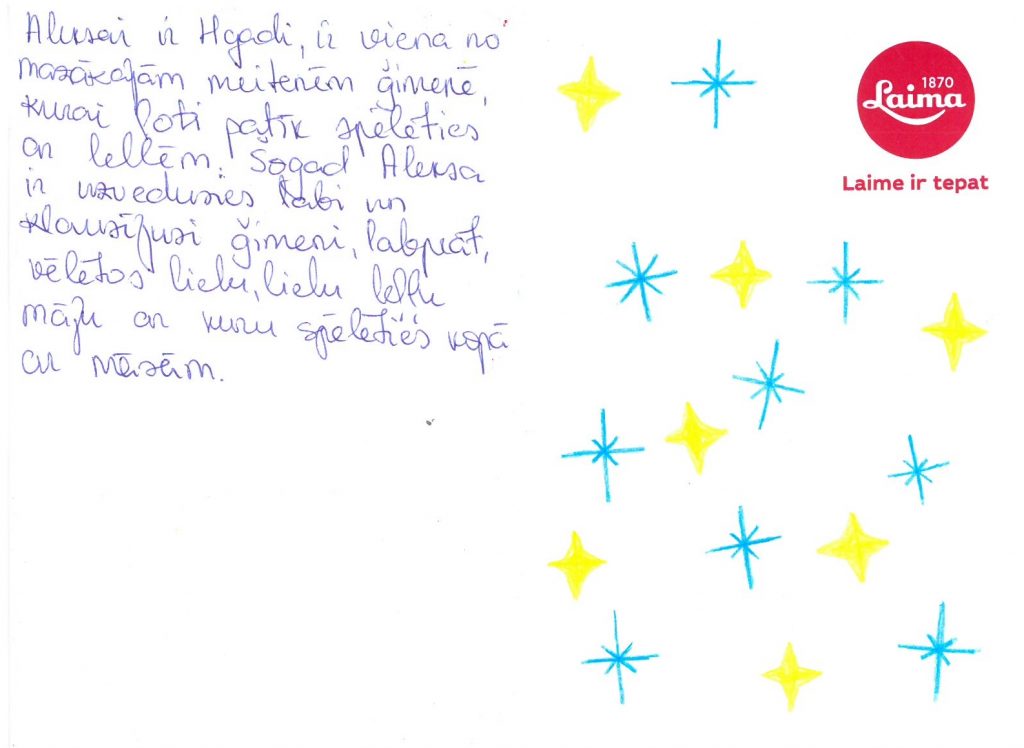 Aleksai ir 4gadi, ir viena no
mazākajām meitenēm ģimenē,
kurai ļoti patīk spēlēties
ar lellēm. Šogad Aleksa
ir uzvedusies labi un
klausījusi ģimeni, labprāt,
vēlētos lielu, lielu leļļu
māju ar kuru spēlēties kopā
ar māsām.
1870
Laima
Laime ir tepat